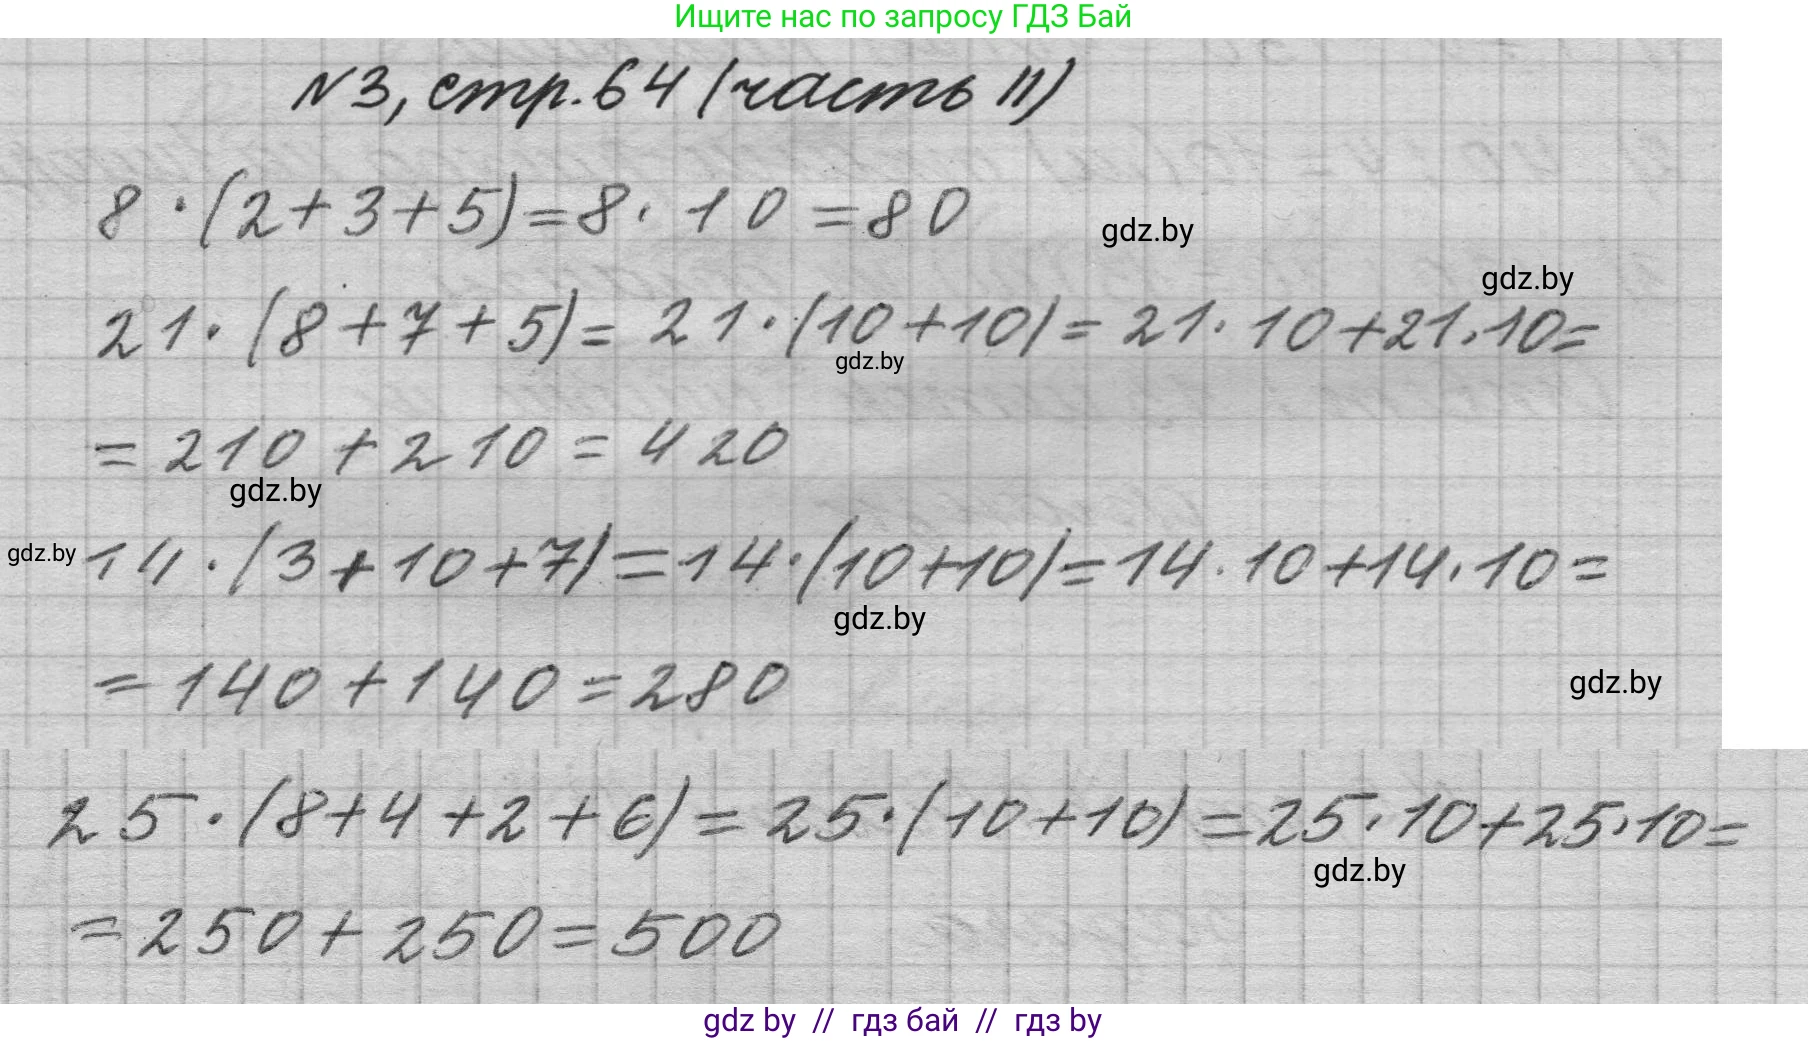 Ищите нас по запросу ГДЗ Бай
№3, стр. 64 (часть II)
8 · (2+3+5)=8 · 10 =80
gdz.by
gdz.by
21 · (8+7+5)= 21 · (10+10)= 21 · 10+21·10=
gdz.by
= 210 +210 = 420
gdz.by
gdz.by
14 · (3+10+7)=14·(10+10)=14·10+14·10=
gdz.by
= 140 +140 =280
gdz.by
25 · (8+4+2+6)=25·(10+10)=25·10+25·10=
gdz.by
=250+250=500
gdz by // гдз бай // гдз by